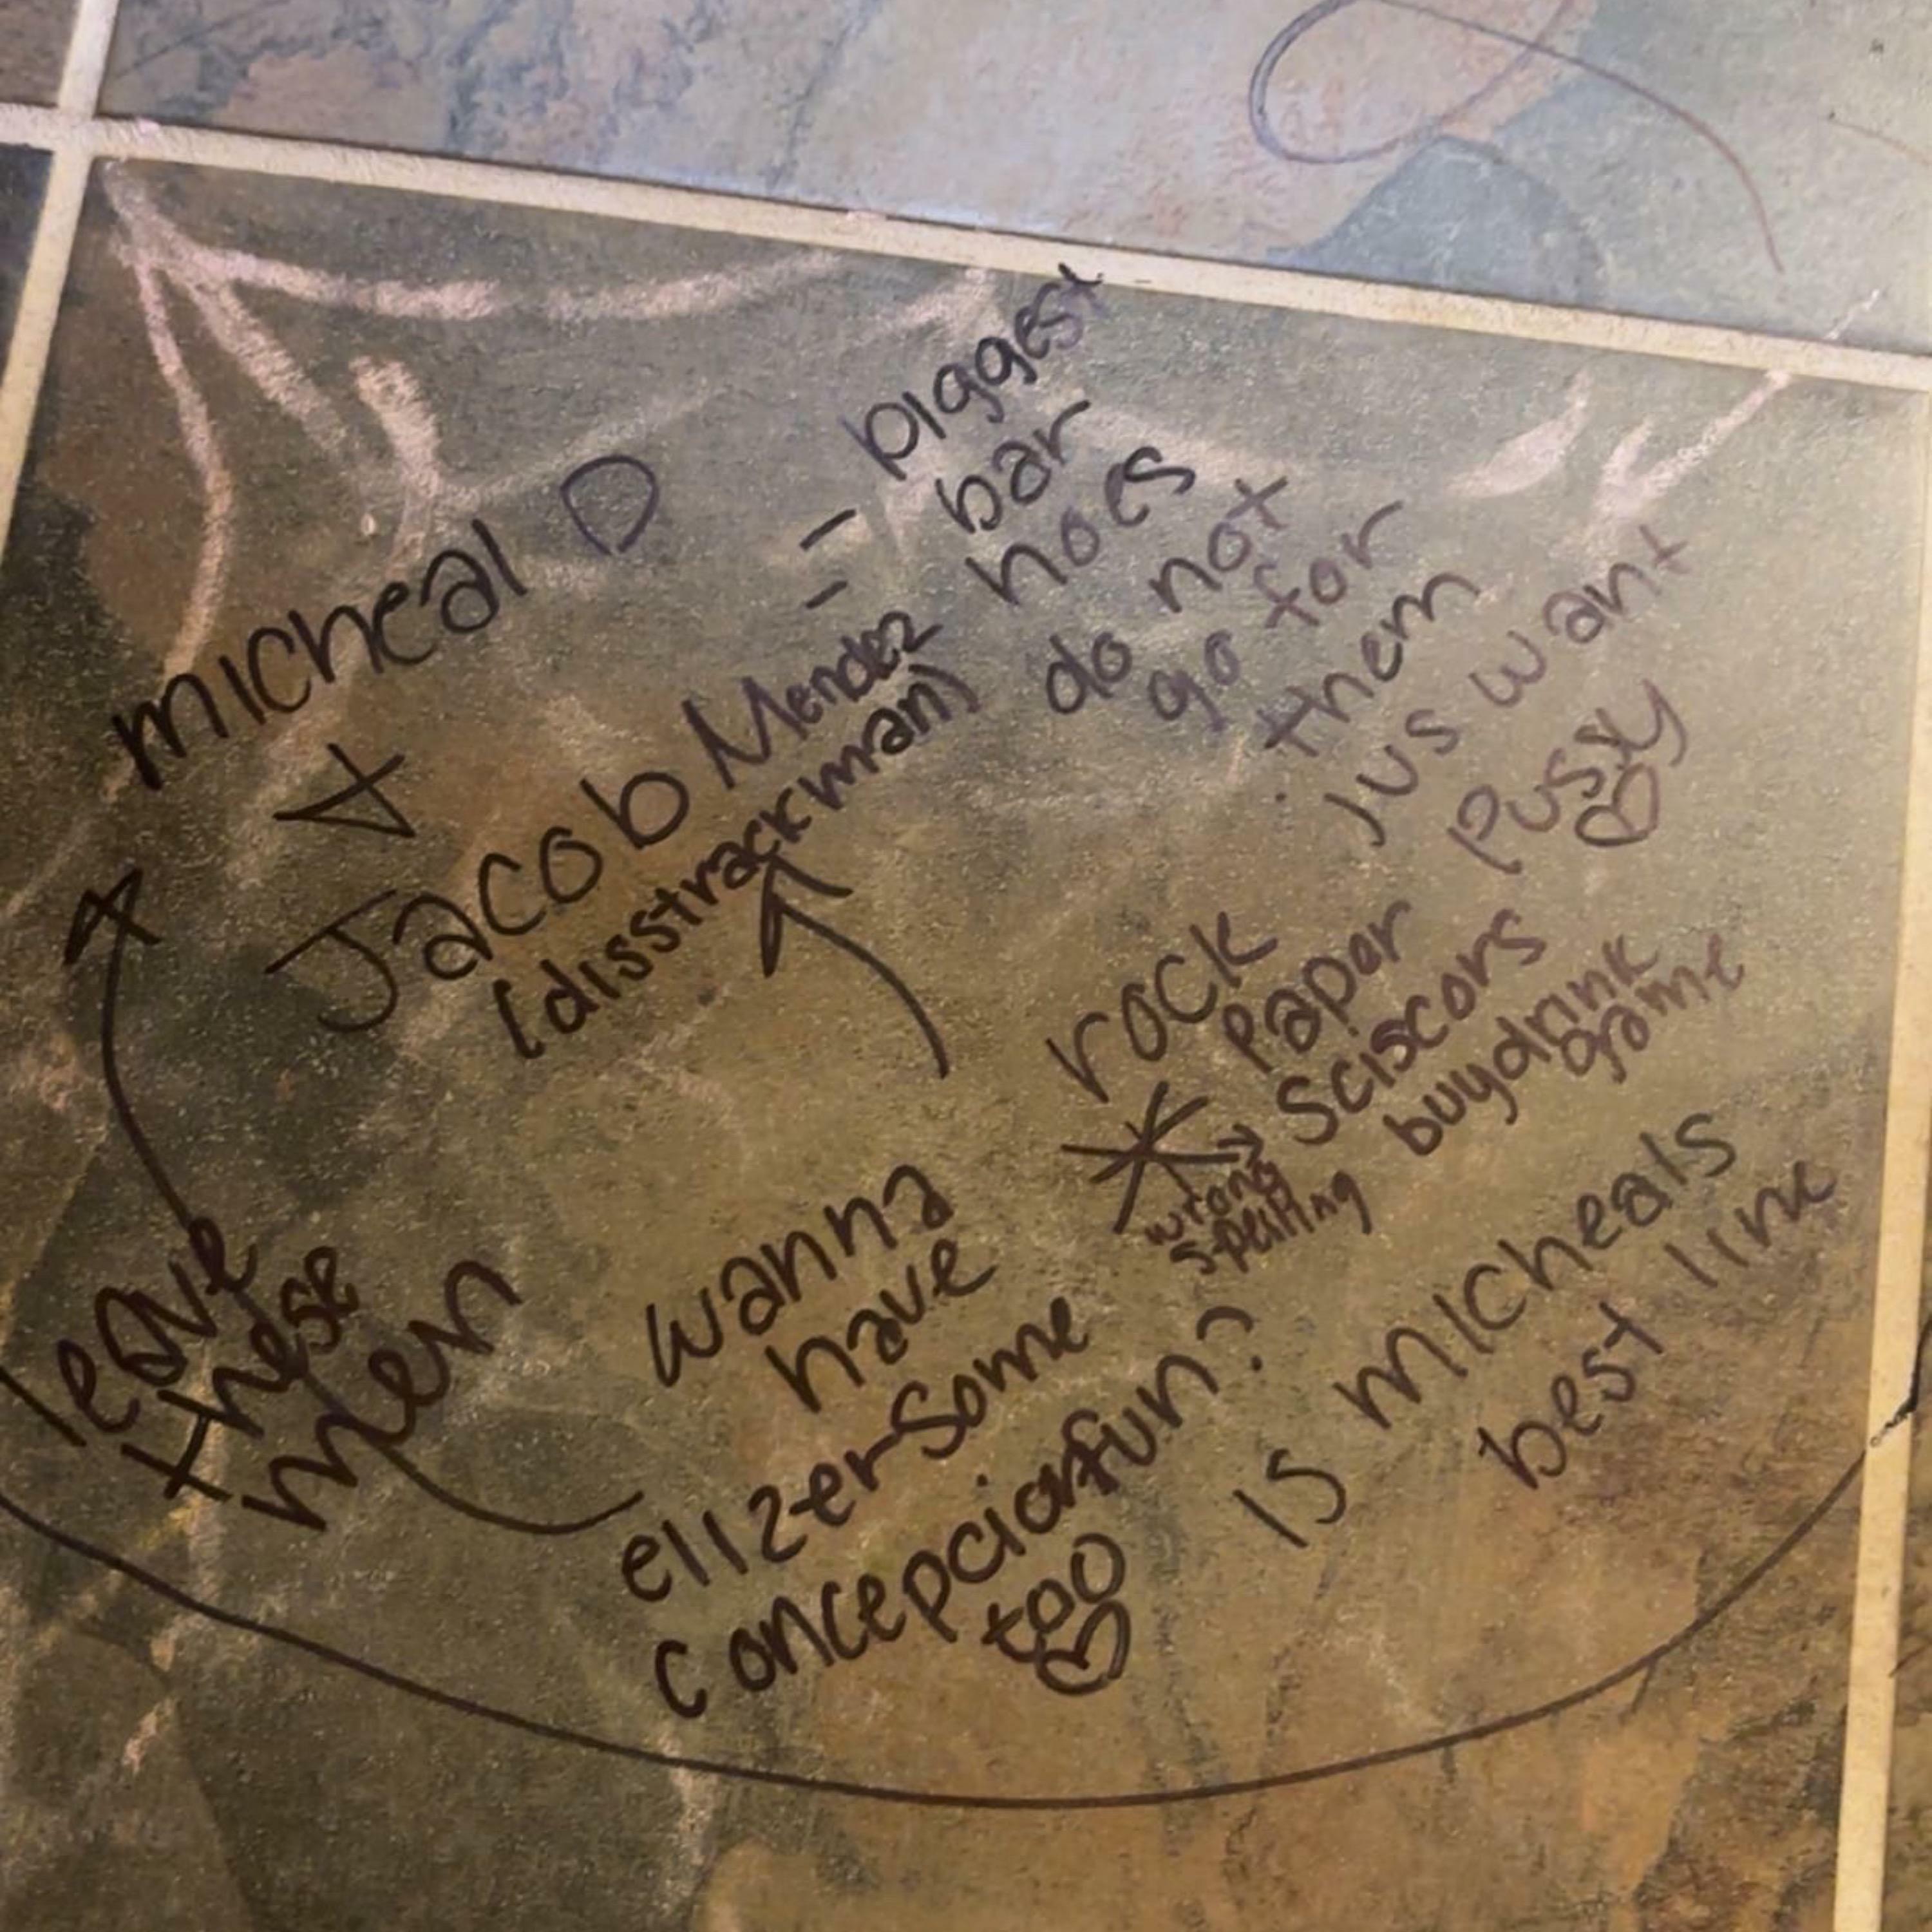 micheal D
+
Jacob Mendez
(disstrackman)
= biggest
bar
hoes
do not
go for
them
jus want
pussy
rock
papor
Sciscors
buydrink
game
wrong
spelling
leave
these
men
wanna
have
some
fun?
elizer
concepcion
too
is micheals
best line